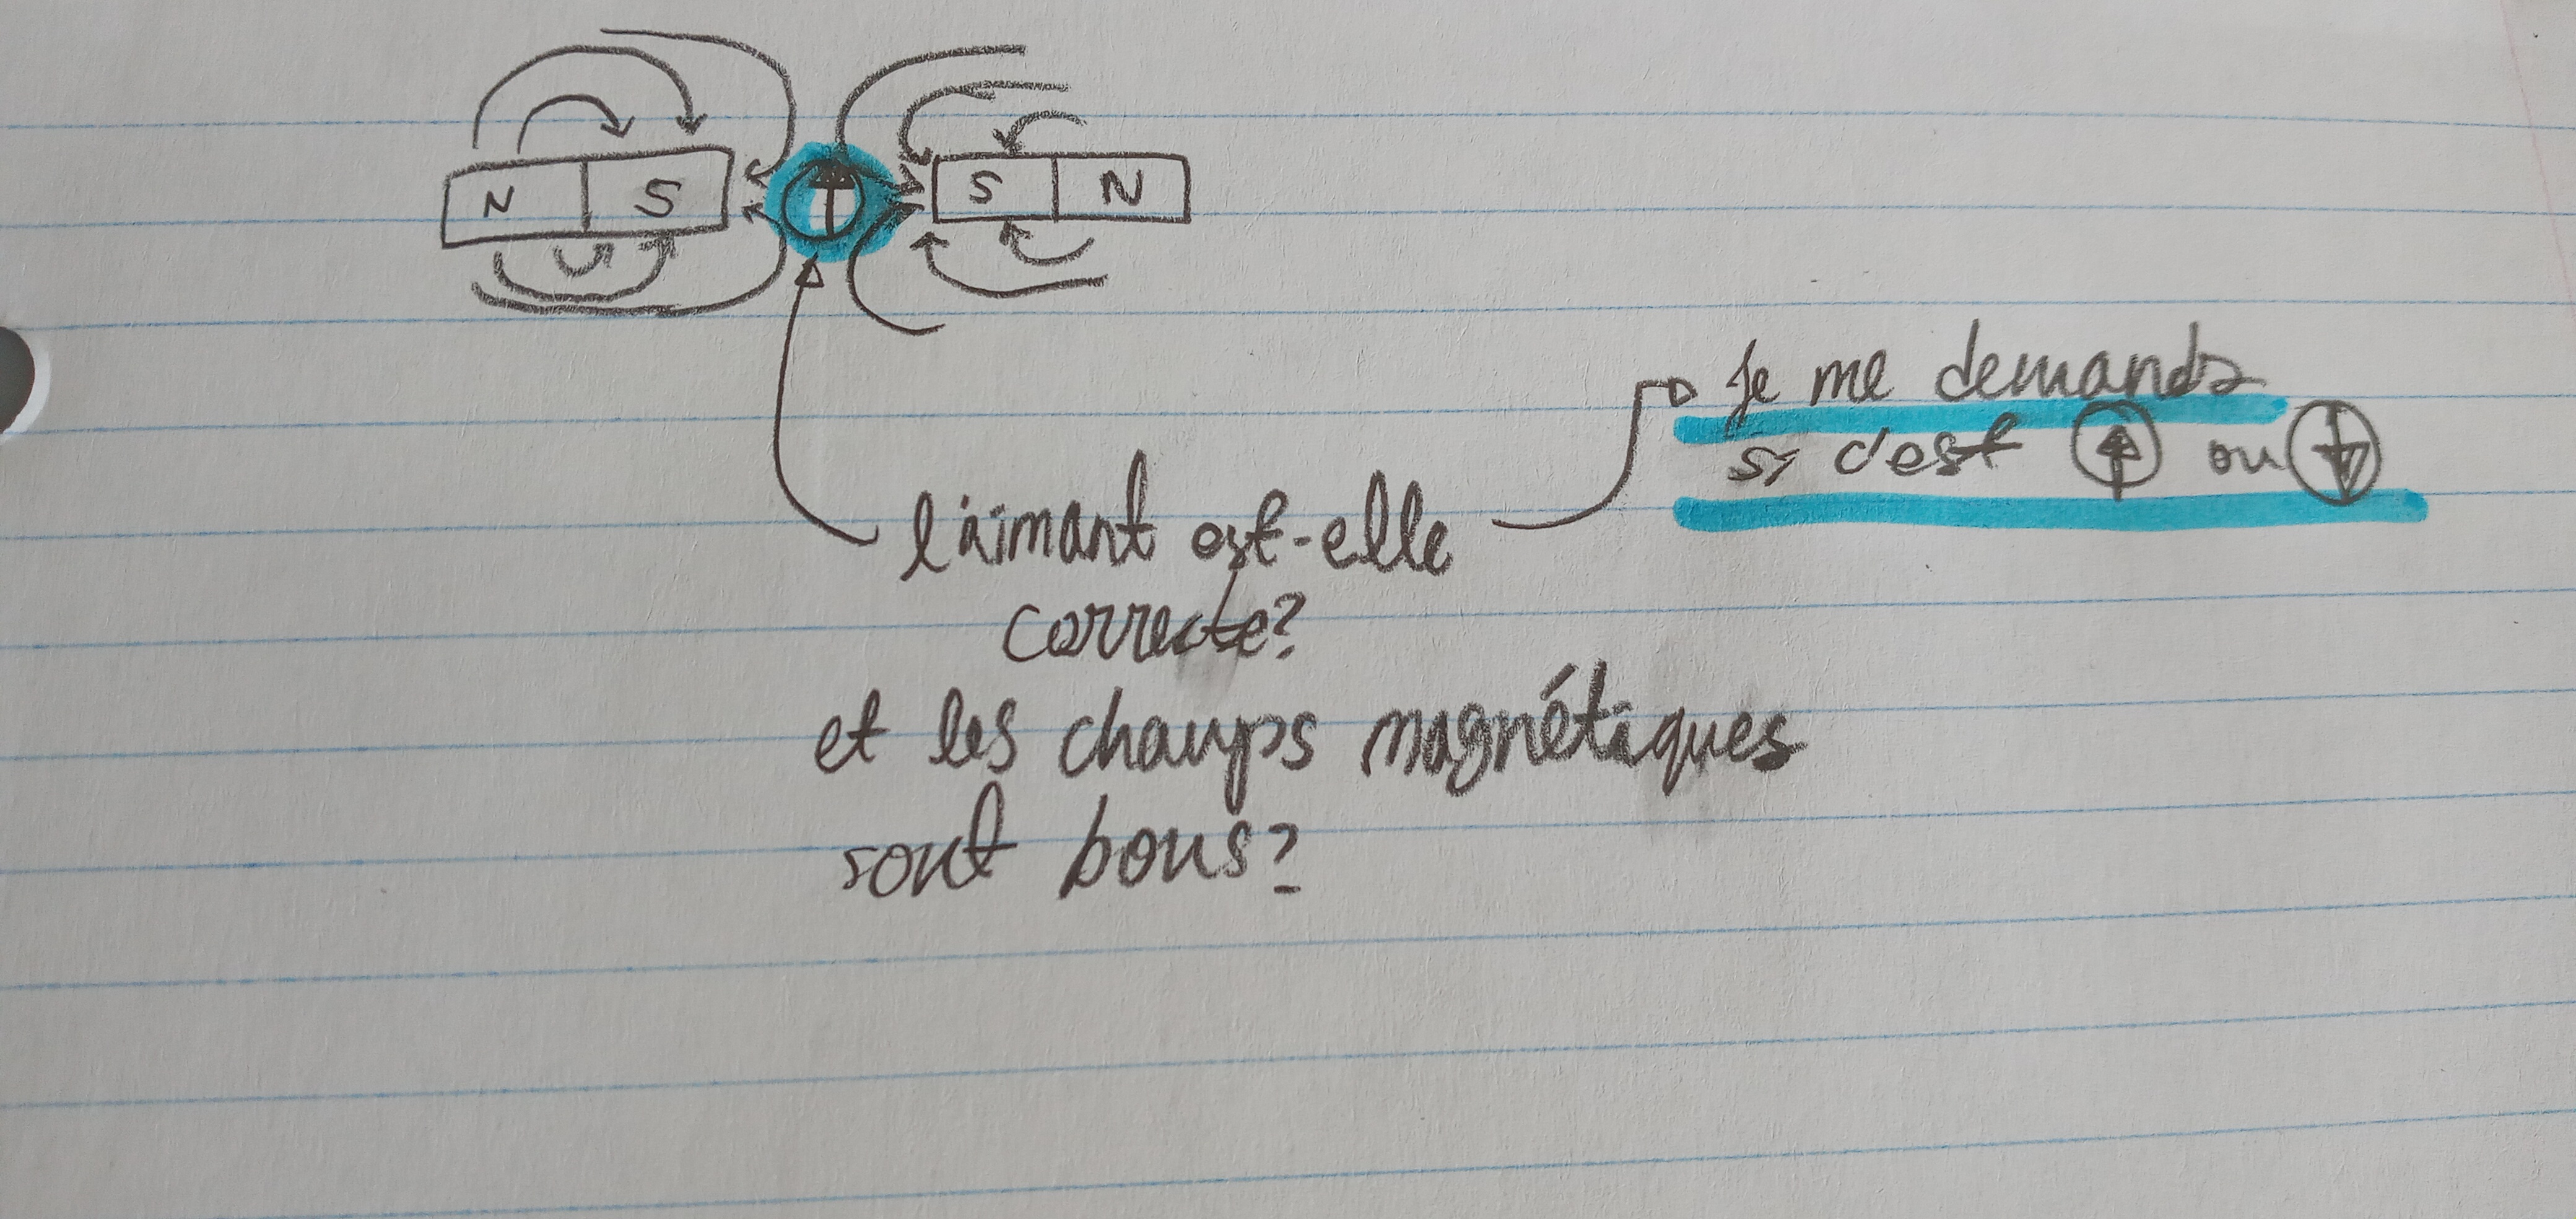 N S S N
Je me demande
si c'est ou
l'aimant est-elle
correcte?
et les champs magnétiques
sont bons?